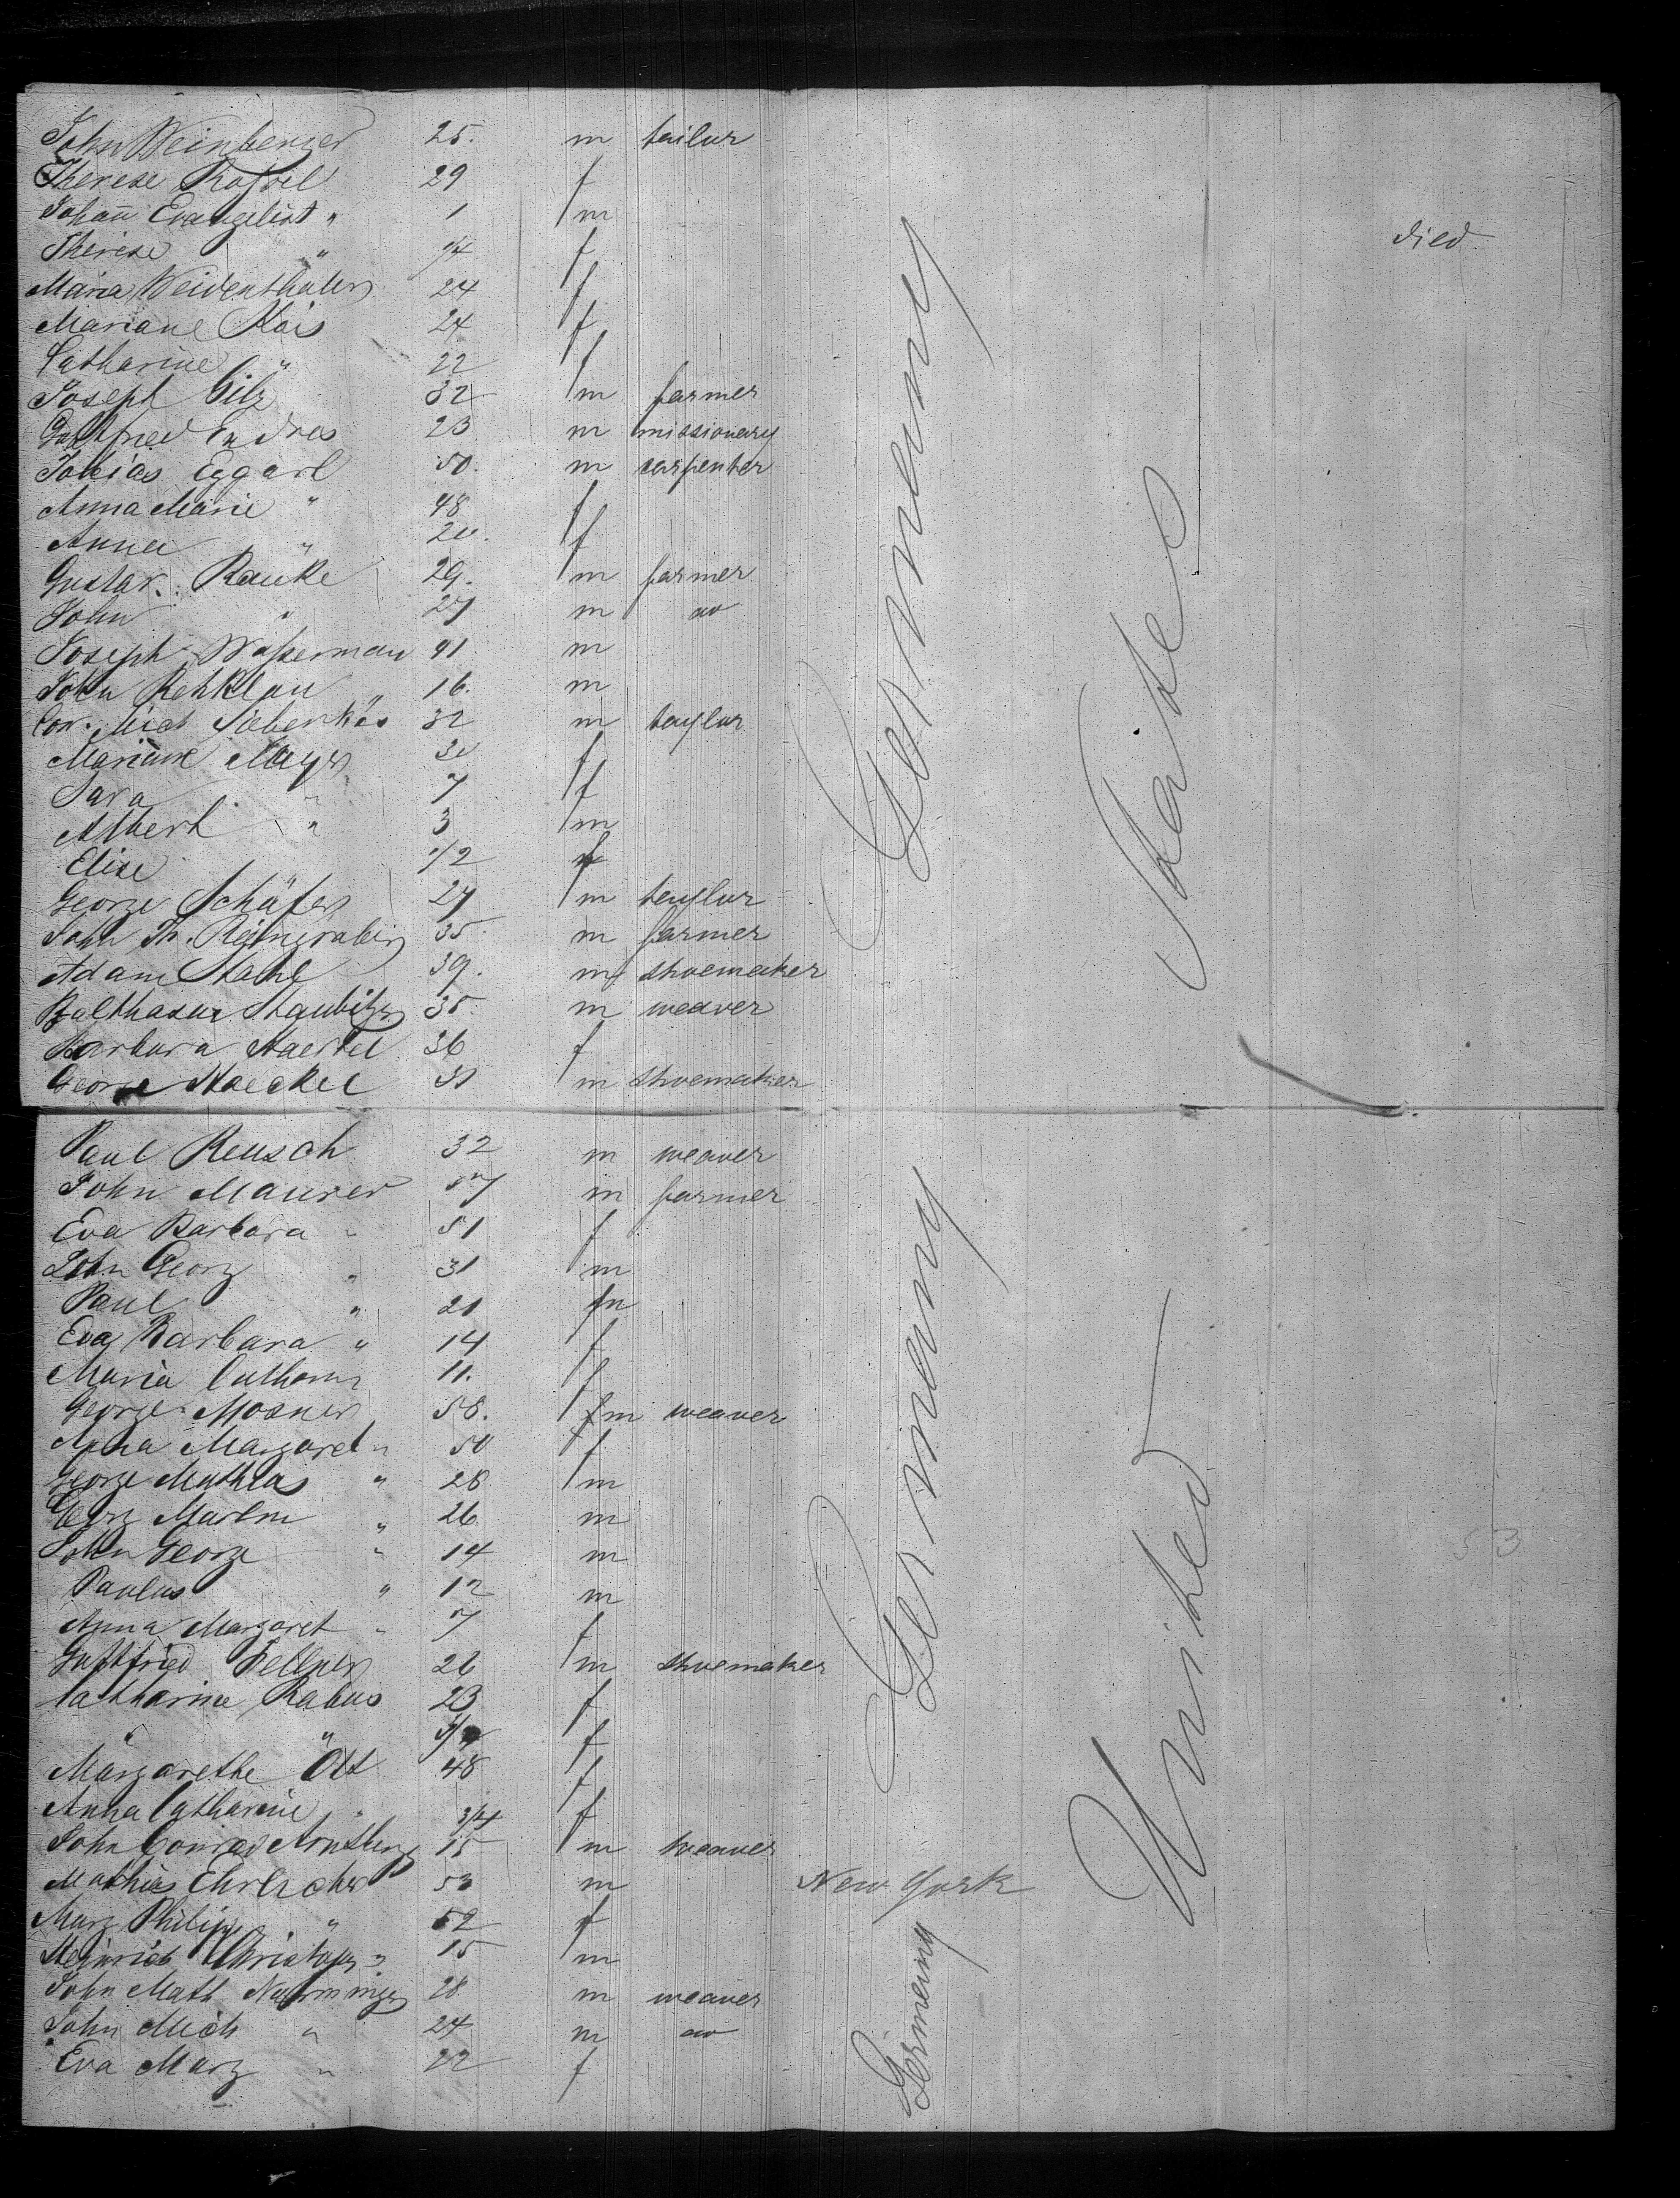 John Weinberger 25. m tailor
Therese Rossel 29 f
Johañ Evangelist " 1 m
Therese " 1/4 f died.
Maria Weidenthaler 24 f
Mariane Kois 24 f
Catharine " 22 f
Joseph Gilz 32 m farmer
Gottfried Endres 23 m missionary
Tobias Eggert 50. m carpenter
Anna Marie " 48 f
Anna " 20. f
Gustav. Rauke 29. m farmer
John " 27 m do
Joseph Wasserman 41 m
John Rehklau 16. m
Con. Mich Sieberkäs 32 m taylor
Mariane Mayer 30 f
Sara " 7 f
Albert " 3 m
Elise 1/2 f
George Schäfer 27 m taylor
John Th. 35. m farmer
Adam Stahl 39. m shoemaker
Balthasar Staubitzer 35. m weaver
Barbara Haertel 36 f
George Haeckel 31 m shoemaker
Paul Reusch 32 m weaver
John Maurer 57 m farmer
Eva Barbara " 51 f
John Georg " 31 m
Paul " 21 m
Eva Barbara " 14 f
Maria Cathar 11. f
George Mosner 58. m weaver
Anna Margaret " 50 f
George Mathias " 28 m
Georg Martin " 26 m
John George " 14 m
Paulus " 12 m
Anna Margaret " 7 f
Gottfried Fellner 26 m shoemaker
Catharine Rabus 23 f
" " f
Margarethe Ott 48 f
Anna Catharine " 3/4 f
John Conrad 15 m weaver
Mathias Ehrlicher 53 m New York
Marg Philip " 52 f
Heinrich Christoph " 15 m
John Math 28 m weaver
John Mich " 24 m do
Eva Marg " 22 f
Germany
Germany
Germany
United States
53